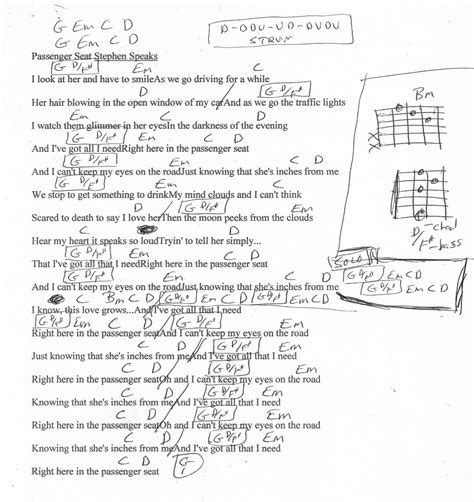 G Em C D
G Em C D
D-DDU-UD-DUDU
STRUM
Passenger Seat Stephen Speaks
G D/F# Em C
I look at her and have to smileAs we go driving for a while
D G D/F# Em C
Her hair blowing in the open window of my carAnd as we go the traffic lights
Em C D
I watch them glimmer in her eyesIn the darkness of the evening
G D/F# Em C D
And I've got all I needRight here in the passenger seat
G D/F# Em C D
And I can't keep my eyes on the roadJust knowing that she's inches from me
G D/F# Em C
We stop to get something to drinkMy mind clouds and I can't think
D G D/F# Em
Scared to death to say I love herThen the moon peeks from the clouds
C D
Hear my heart it speaks so loudTryin' to tell her simply...
G D/F# Em C D
That I've got all that I needRight here in the passenger seat
G D/F# Em C D
And I can't keep my eyes on the roadJust knowing that she's inches from me
C Bm C D G D/F# Em C D G D/F# Em C D
I know, this love grows...And I've got all that I need
G D/F# Em C D G D/F# Em
Right here in the passenger seatAnd I can't keep my eyes on the road
C D G D/F#
Just knowing that she's inches from meAnd I've got all that I need
Em C D G D/F# Em
Right here in the passenger seatOh and I can't keep my eyes on the road
C D G D/F#
Knowing that she's inches from meAnd I've got all that I need
Em C D G D/F# Em
Right here in the passenger seatOh and I can't keep my eyes on the road
C D G D/F#
Knowing that she's inches from meAnd I've got all that I need
C D G
Right here in the passenger seat
Bm
D/F#
-chord
-bass
SOLO
G D/F# Em C D
G D/F# Em C D